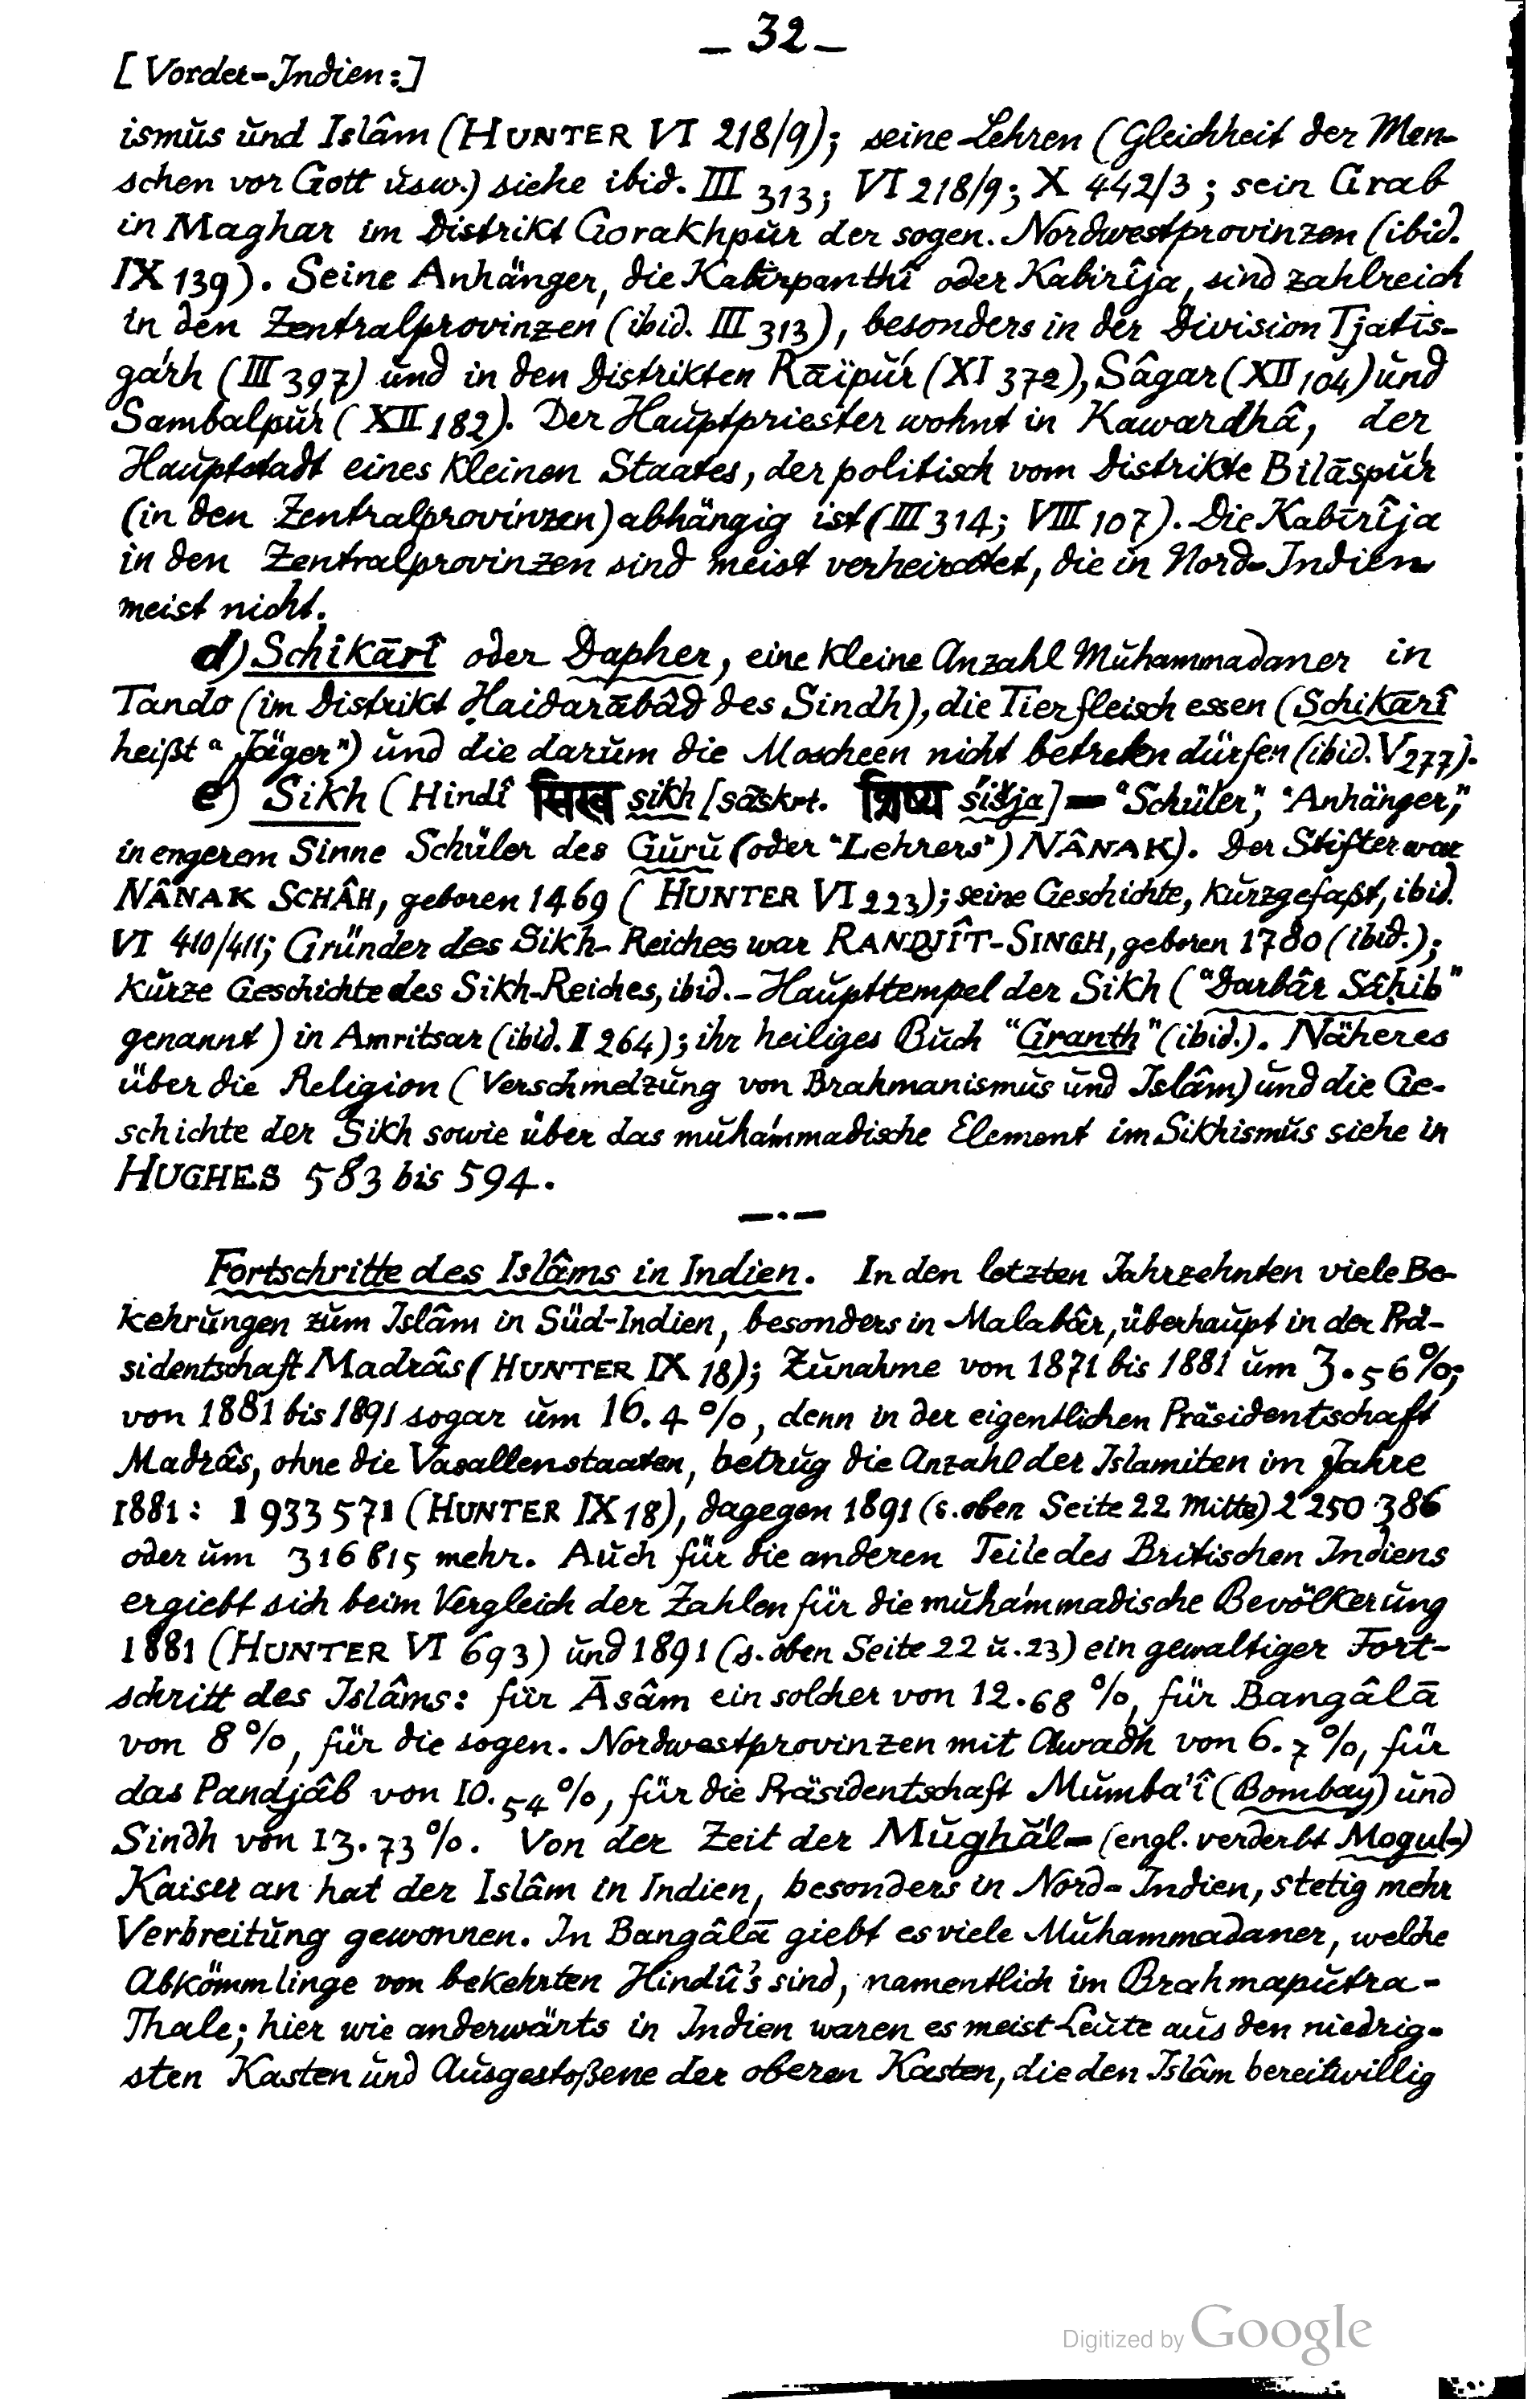 — 32 —
[Vorder-Indien:]
ismus und Islâm (HUNTER VI 218/9); seine Lehren (Gleichheit der Men-
schen vor Gott usw.) siehe ibid. III 313; VI 218/9; X 442/3; sein Grab
in Maghar im Distrikt Gorakhpur der sogen. Nordwestprovinzen (ibid.
IX 139). Seine Anhänger, die Kabīrpanthî oder Kabirîja, sind zahlreich
in den Zentralprovinzen (ibid. III 313), besonders in der Division Tjatīs-
gárh (III 397) und in den Distrikten Rāïpúr (XI 372), Sâgar (XII 104) und
Sambalpúr (XII 182). Der Hauptpriester wohnt in Kawardhâ, der
Hauptstadt eines kleinen Staates, der politisch vom Distrikte Bilāspúr
(in den Zentralprovinzen) abhängig ist (III 314; VIII 107). Die Kabīrîja
in den Zentralprovinzen sind meist verheiratet, die in Nord-Indien
meist nicht.
d) Schikārî oder Dapher, eine kleine Anzahl Muhammadaner in
Tando (im Distrikt Ḥaidarābâd des Sindh), die Tierfleisch essen (Schikārî
heißt “Jäger”) und die darum die Moscheen nicht betreten dürfen (ibid. V 277).
e) Sikh (Hindî सिख sikh [sāskrt. शिष्य śišja] = “Schüler”, “Anhänger”,
in engerem Sinne Schüler des Guru (oder “Lehrers”) NÂNAK). Der Stifter war
NÂNAK SCHÂH, geboren 1469 (HUNTER VI 223); seine Geschichte, kurzgefaßt, ibid.
VI 410/411; Gründer des Sikh-Reiches war RANDJÎT-SINGH, geboren 1780 (ibid.);
kurze Geschichte des Sikh-Reiches, ibid. – Haupttempel der Sikh (“Darbâr Sâḥib”
genannt) in Amritsar (ibid. I 264); ihr heiliges Buch “Granth” (ibid.). Näheres
über die Religion (Verschmelzung von Brahmanismus und Islâm) und die Ge-
schichte der Sikh sowie über das muhámmadische Element im Sikhismus siehe in
HUGHES 583 bis 594.
—·—
Fortschritte des Islâms in Indien. In den letzten Jahrzehnten viele Be-
kehrungen zum Islâm in Süd-Indien, besonders in Malabâr, überhaupt in der Prä-
sidentschaft Madrâs (HUNTER IX 18); Zunahme von 1871 bis 1881 um 3.56 %;
von 1881 bis 1891 sogar um 16.4 %, denn in der eigentlichen Präsidentschaft
Madrâs, ohne die Vasallenstaaten, betrug die Anzahl der Islamiten im Jahre
1881: 1 933 571 (HUNTER IX 18), dagegen 1891 (s. oben Seite 22 Mitte) 2 250 386
oder um 316 815 mehr. Auch für die anderen Teile des Britischen Indiens
ergiebt sich beim Vergleich der Zahlen für die muhámmadische Bevölkerung
1881 (HUNTER VI 693) und 1891 (s. oben Seite 22 u. 23) ein gewaltiger Fort-
schritt des Islâms: für Āsâm ein solcher von 12.68 %, für Bangâlā
von 8 %, für die sogen. Nordwestprovinzen mit Awadh von 6.7 %, für
das Pandjâb von 10.54 %, für die Präsidentschaft Mumba'î (Bombay) und
Sindh von 13.73 %. Von der Zeit der Mughál- (engl. verderbt Mogul-)
Kaiser an hat der Islâm in Indien, besonders in Nord-Indien, stetig mehr
Verbreitung gewonnen. In Bangâlā giebt es viele Muhammadaner, welche
Abkömmlinge von bekehrten Hindû's sind, namentlich im Brahmaputra-
Thale; hier wie anderwärts in Indien waren es meist Leute aus den niedrig-
sten Kasten und Ausgestoßene der oberen Kasten, die den Islâm bereitwillig
Digitized by Google